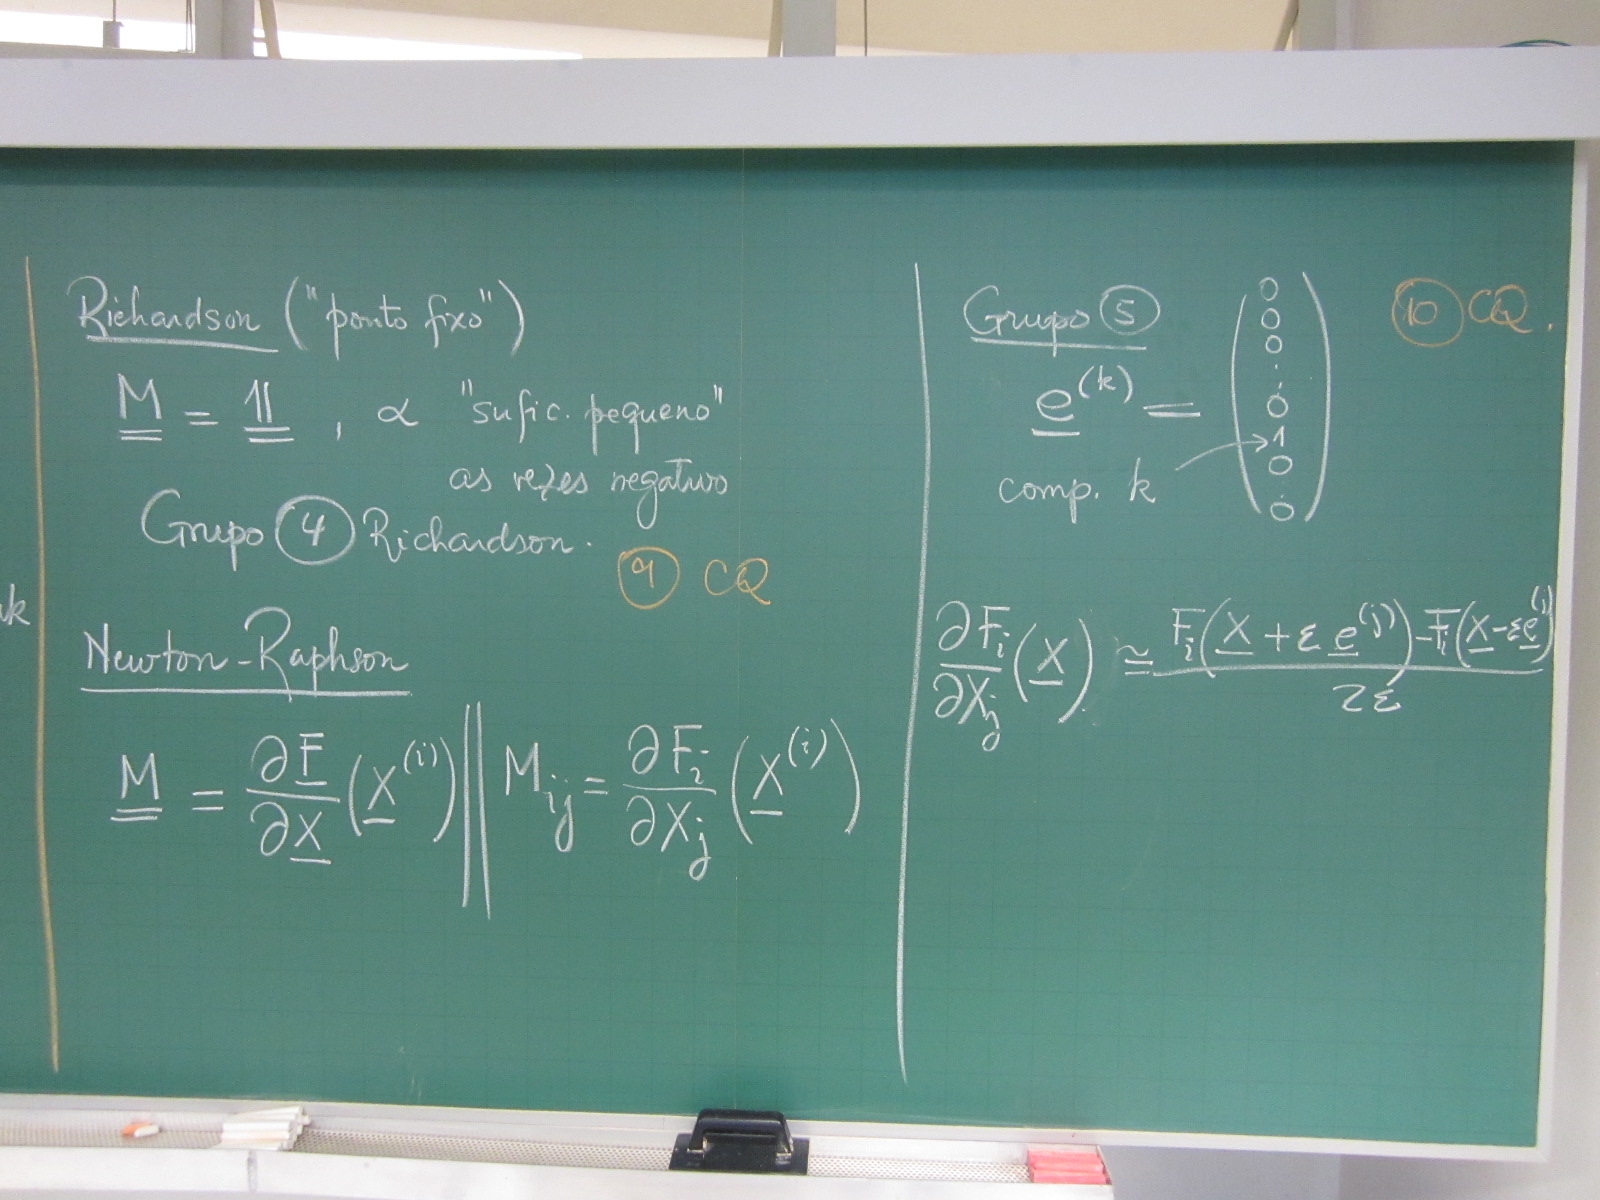 Richardson ("ponto fixo")
M = 1 , α "sufic. pequeno"
as vezes negativo
Grupo 4 Richardson.
9 CQ
Newton-Raphson
M = ∂F/∂X (X^(i)) || M_ij = ∂F_i/∂X_j (X^(i))
Grupo 5
10 CQ.
e^(k) = (0 0 0 . . 0 1 0 . 0)
comp. k
∂F_i/∂X_j (X) ≃ F_i(X + ε e^(j)) - F_i(X - ε e^(j)) / 2ε